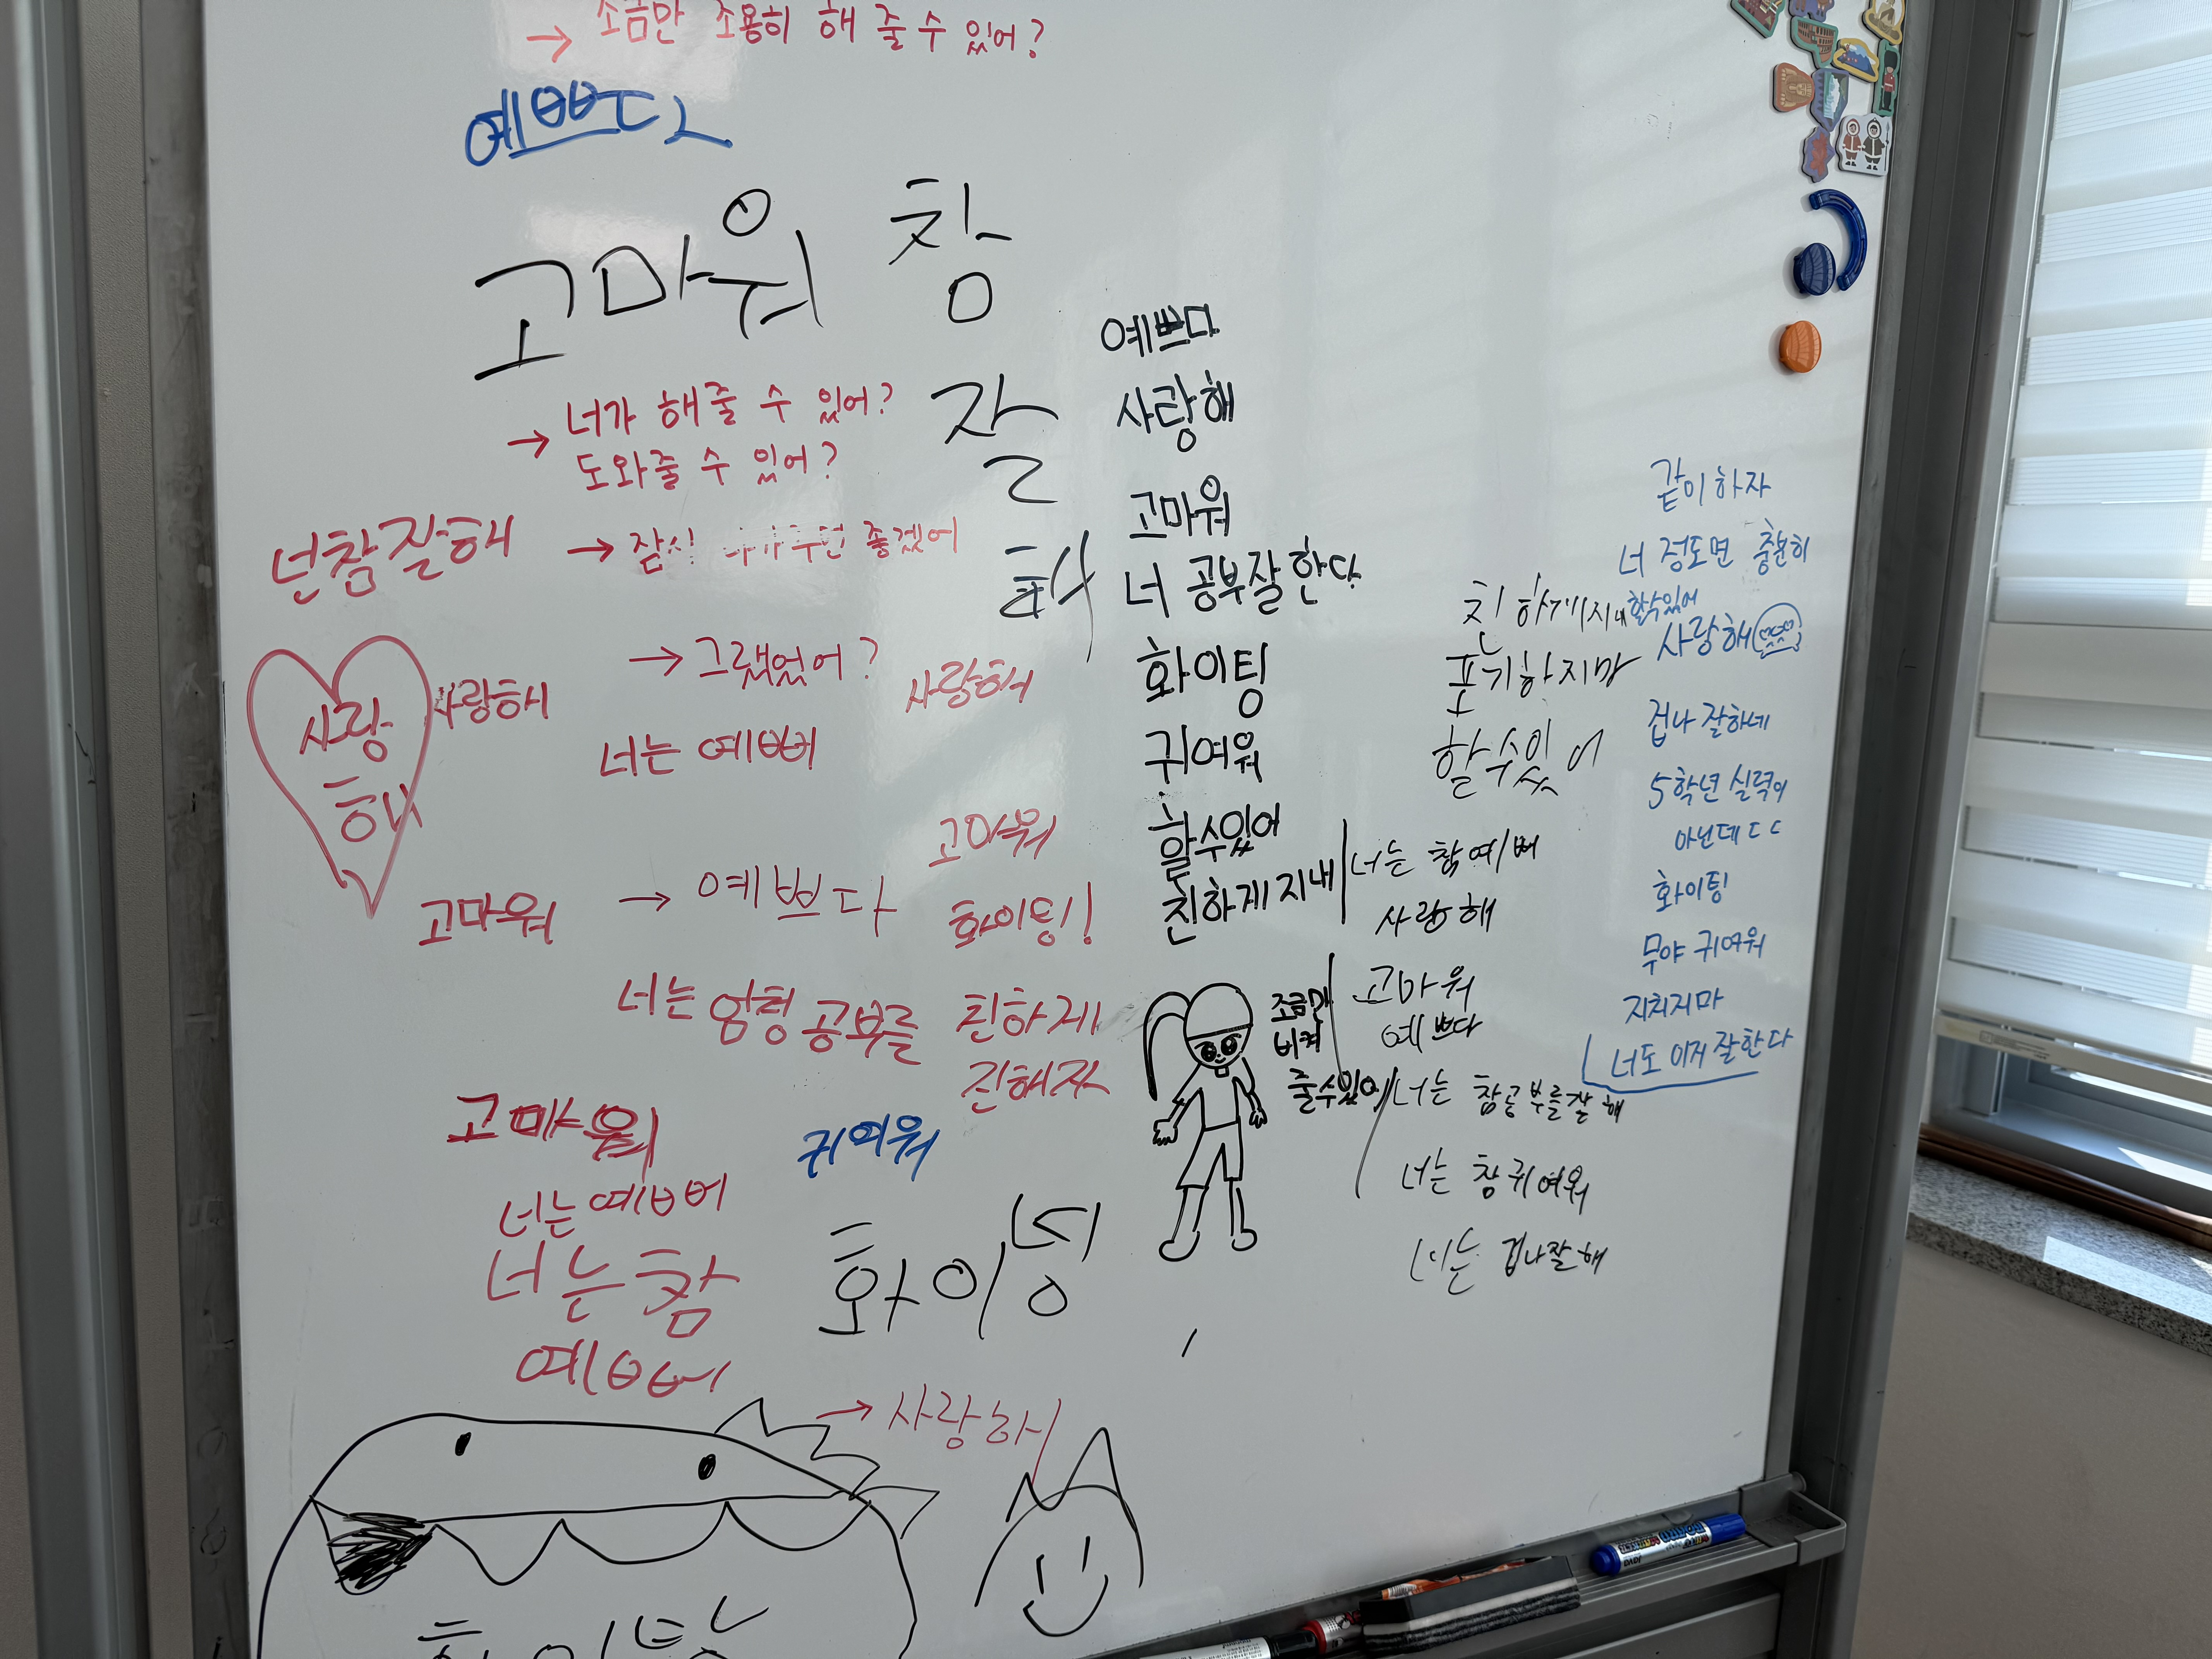 → 조금만 조용히 해 줄 수 있어?
예쁘다
고마워 참
잘
해
→ 너가 해줄 수 있어?
도와줄 수 있어?
넌참잘해
→ 잠시 좋겠어
→ 그랬었어?
사랑해
사랑해
사랑해
너는 예뻐
고마워
고마워
→ 예쁘다
화이팅!
너는 엄청 공부를
친하게
친해지자
고마워
귀여워
너는예뻐
너는 참
예뻐
화이팅
→ 사랑해
화이팅
예쁘다
사랑해
고마워
너 공부잘한다
화이팅
귀여워
할수있어
친하게 지내
조금만
비켜
줄수있어
친하게지내
포기하지마
할수있어
너는 참예뻐
사랑해
고마워
예쁘다
너는 참공부를잘해
너는 참 귀여워
너는 겁나잘해
같이하자
너 정도면 충분히
할수있어
사랑해
겁나 잘하네
5학년 실력이
아닌데 ㄷㄷ
화이팅
무야 귀여워
지치지마
너도 이제 잘한다